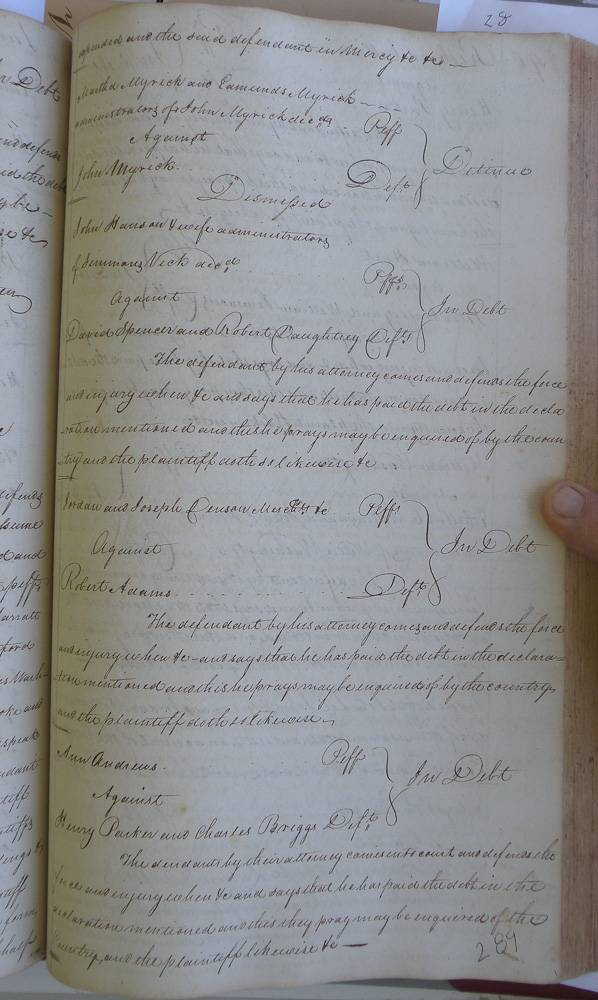 28
and the said defendant in Mercy &c &c
Martha Myrick and Edmunds Myrick
administrators of John Myrick decd. Plff
Against
Detinue
John Myrick. Deft.
Dismissed
John Hanson & wife administrators
of Simmons Vick decd. Plffs.
Against
In Debt
David Spencer and Robert Daughtrey Defts
The defendant by his attorney comes and defends the force
and injury when &c and says that he has paid the debt in the decla
ration mentioned and this he prays may be enquired of by the coun
try and the plaintiff doth so likewise &c
Jordan and Joseph Denson Merchts &c Plffs
Against
In Debt
Robert Adams Deft.
The defendant by his attorney comes and defends the force
and injury when &c - and says that he has paid the debt in the declara=
tion mentioned and this he prays may be enquired of by the country
and the plaintiff doth so likewise
Ann Andrews. Plff
Against
In Debt
Henry Parker and Charles Briggs Deft.
The dendants by their attorney comes into court and defends the
force and injury when &c and says that he has paid the debt in the
declaration mentioned and this they pray may be enquired of the
Country, and the plaintiff likewise &c
289